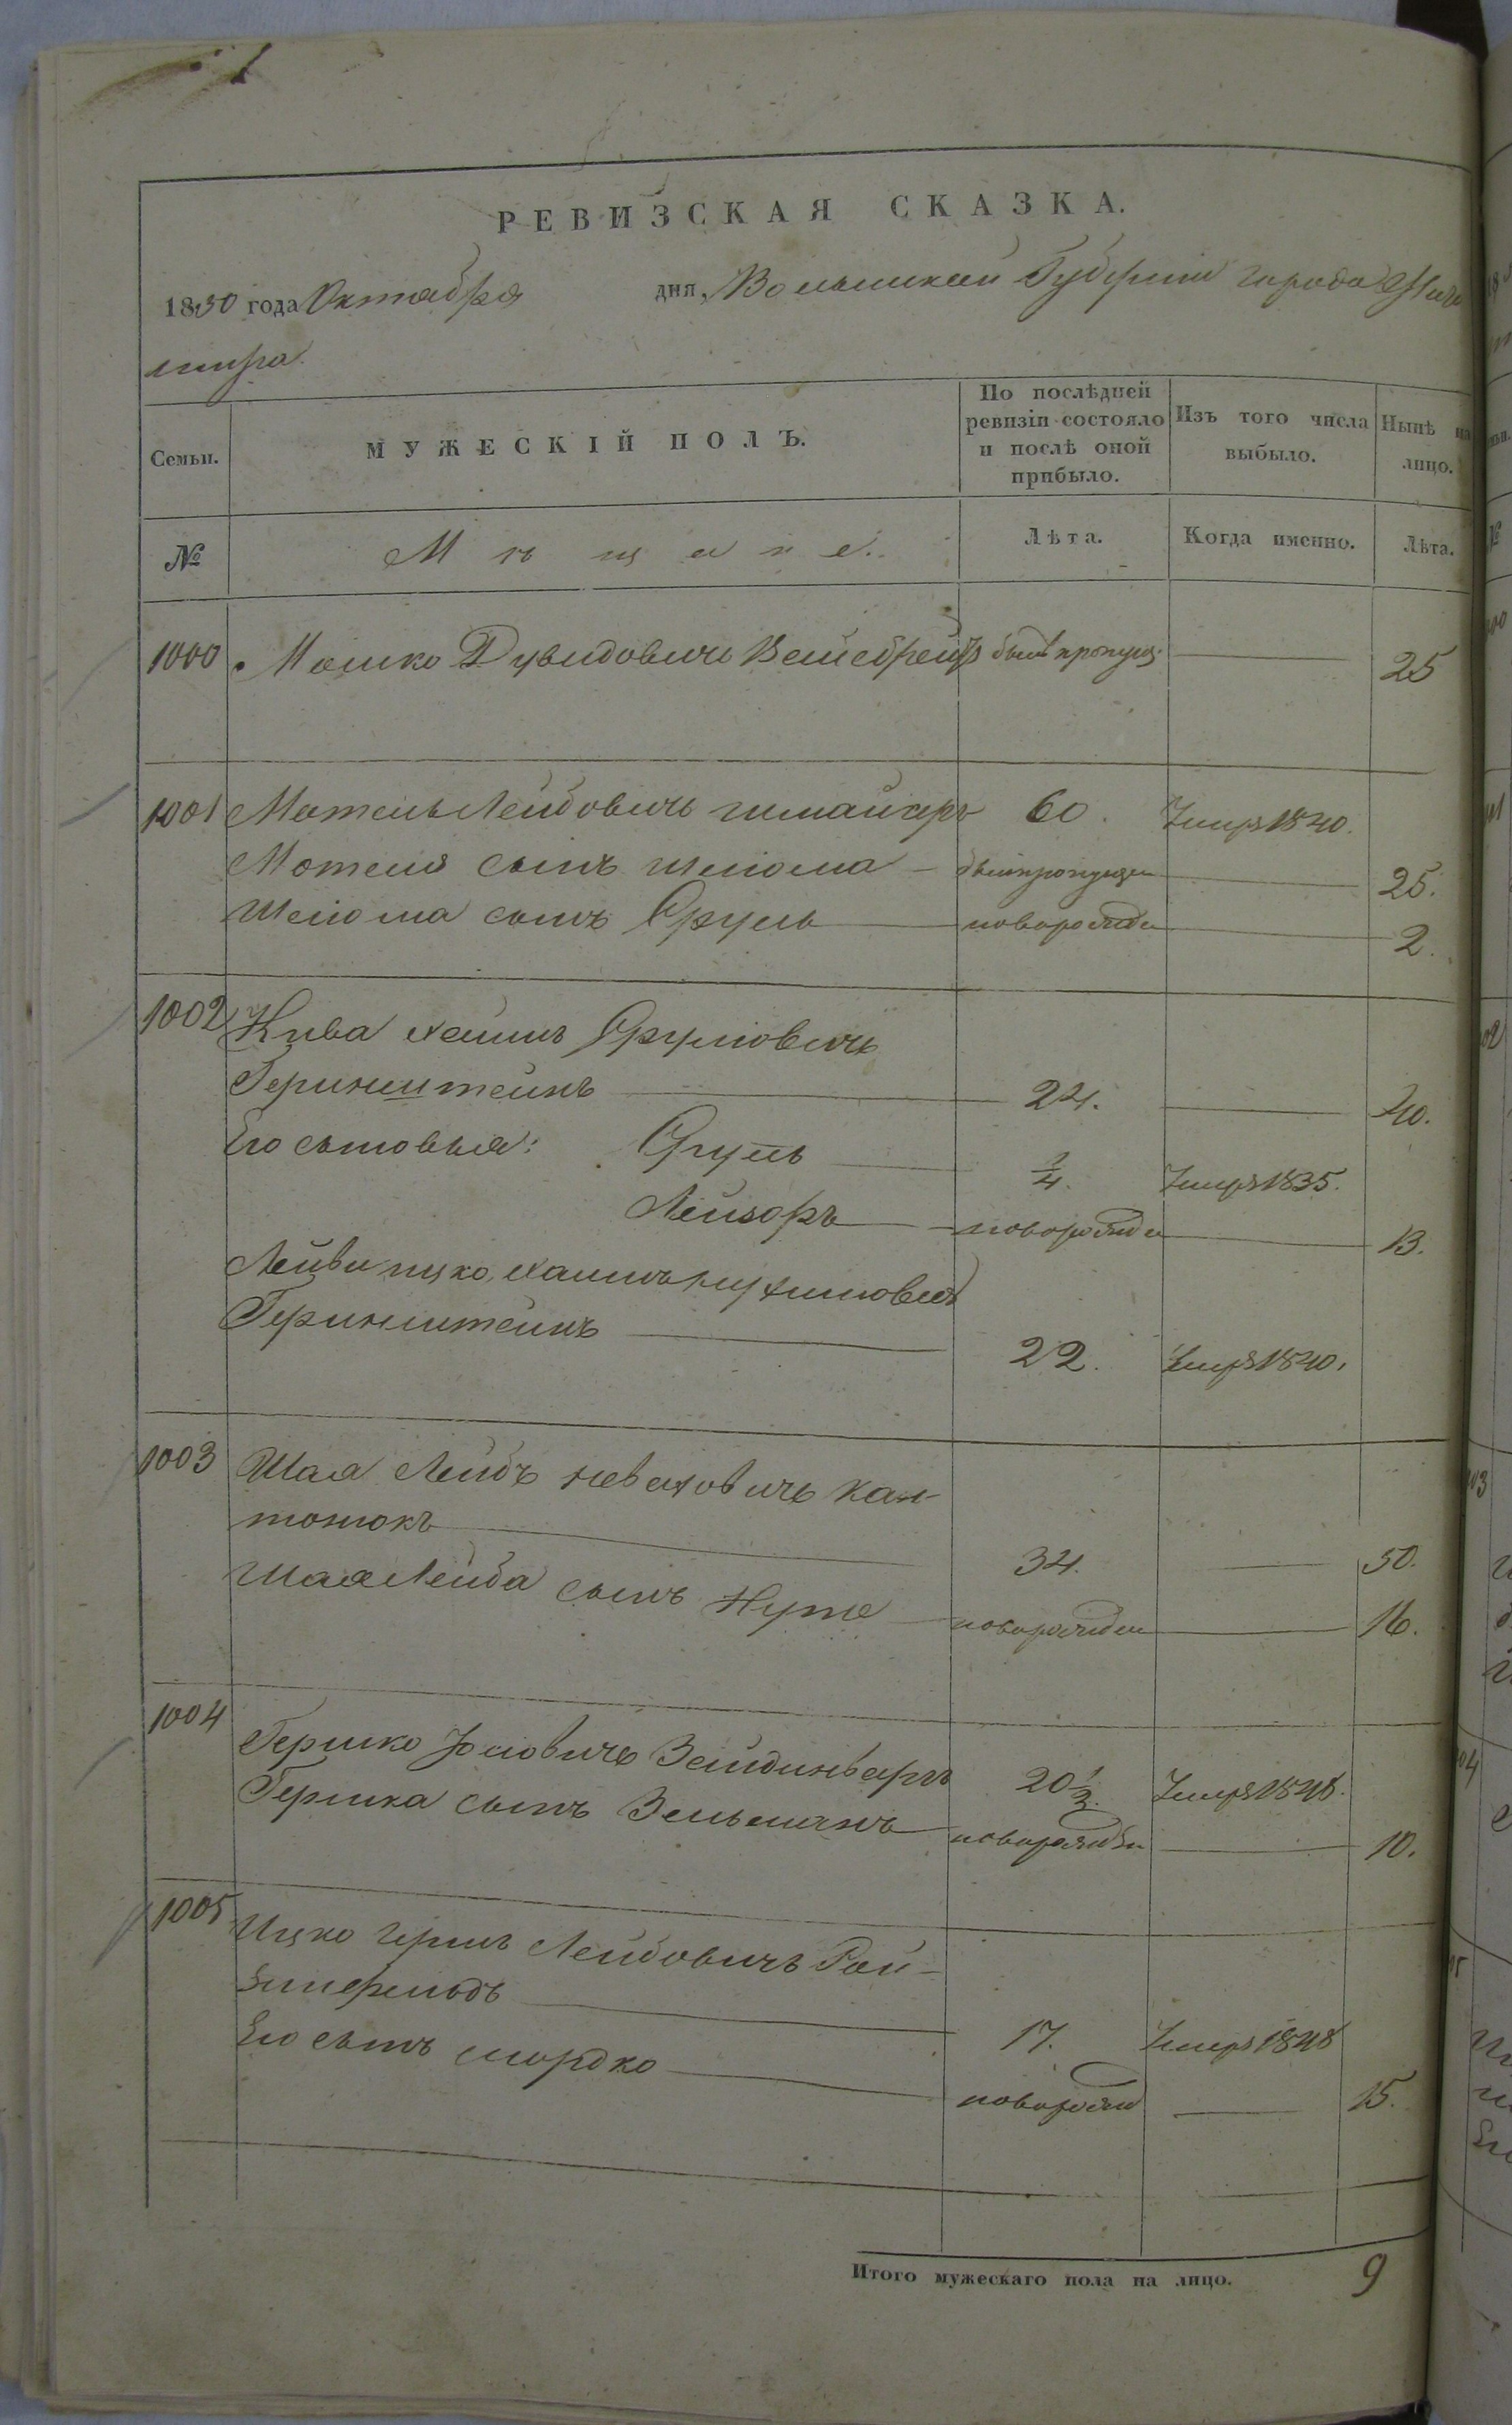 РЕВИЗСКАЯ СКАЗКА.
1850 года Октября дня, Волынской Губернии города Жито
мира.
Семьи. МУЖЕСКІЙ ПОЛЪ. По послѣдней ревизіи состояло и послѣ оной прибыло. Изъ того числа выбыло. Нынѣ на лицо.
№ Мѣщане. Лѣта. Когда именно. Лѣта.
1000 Мошко Дувидовичъ был пропущ. 25
1001 Мотель Лейбовичъ 60. Умеръ 1840.
Мотеля сынъ Шлиома былъ пропущен 25.
Шлиома сынъ Сруль новорожден 2.
1002 Кива Хаимъ Сруліовичъ
Геринштейнъ 24. 40.
Его сыновья: Сруль 1/4. Умеръ 1835.
Лейзоръ новорожден 13.
Лейви Ицко Хаимъ
Геринштейнъ 22. Умеръ 1840.
1003 Шая Лейбъ Невахович Кан-
тонюкъ 34. 50.
Шая Лейба сынъ Нута новорожден 16.
1004 Гершко 20 1/2. Умеръ 1848.
Гершка сынъ Зельманъ новорожден 10.
1005 Ицко Гершъ Лейбовичъ Рой-
зинфельдъ 17. Умеръ 1848
Его сынъ Мордко новорожд 15.
Итого мужескаго пола на лицо. 9